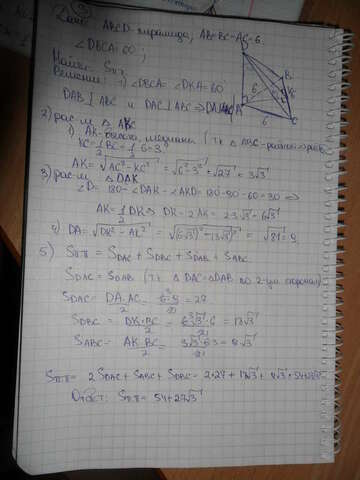 Дано: ABCD-пирамида, AB=BC=AC=6
∠DBCA=60°;
Найти: Sпп
Решение: 1) ∠DBCA= ∠DKA=60
DAB ⊥ ABC и DAC ⊥ ABC ⇒ DA⊥ABC
2) рас-м △ ABC
1) AK-высота, медиана (тк △ ABC-равност.)
KC = 1/2 BC = 1/2 6=3
AK = √AC²-KC² = √6²-3² = √27 = 3√3
3) рас-м △ DAK
∠D= 180-∠DAK-∠AKD= 180-90-60=30 ⇒
AK = 1/2 DK ⇒ DK=2AK= 2·3√3=6√3
4) DA= √DK²-AK² = √(6√3)²-(3√3)² = √81=9
5) Sпп = SDAC + SDBC + SDAB + SABC
SDAC = SDAB (тк △ DAC=△DAB по 2-ум сторонам)
SDAC = DA·AC/2 = 6·9/2 = 27
SDBC = DK·BC/2 = 6√3·6/2 = 18√3
SABC = AK·BC/2 = 3√3·6/2 = 9√3
Sпп = 2SDAC + SABC + SDBC = 2·27 + 18√3 + 9√3 = 54+27√3
Ответ: Sпп = 54+27√3
B
K
C
6
6